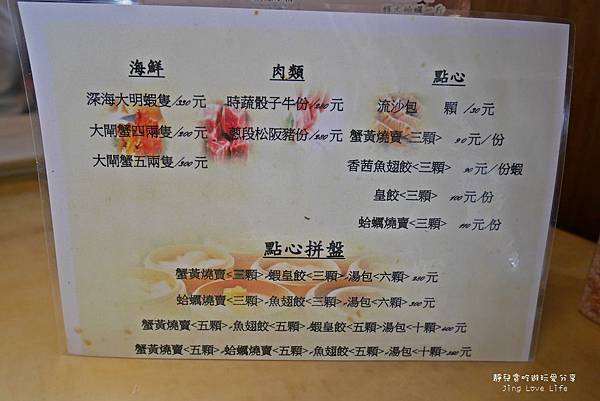 海鮮
深海大明蝦隻/350元
大閘蟹四兩隻/200元
大閘蟹五兩隻/300元
肉類
時蔬骰子牛份/280元
蔥段松阪豬份/280元
點心
流沙包 顆 /30元
蟹黃燒賣<三顆> 90元/份
香茜魚翅餃<三顆> 90元/份蝦
皇餃<三顆> 100元/份
蛤蠣燒賣<三顆> 110元/份
點心拼盤
蟹黃燒賣<三顆>,蝦皇餃<三顆>,湯包<六顆>250元
蛤蠣燒賣<三顆>,魚翅餃<三顆>,湯包<六顆>300元
蟹黃燒賣<五顆>,魚翅餃<五顆>,蝦皇餃<五顆>湯包<十顆>400元
蟹黃燒賣<五顆>,蛤蠣燒賣<五顆>,魚翅餃<五顆>,湯包<十顆>元
靜兒貪吃遊玩愛分享
Jing Love Life